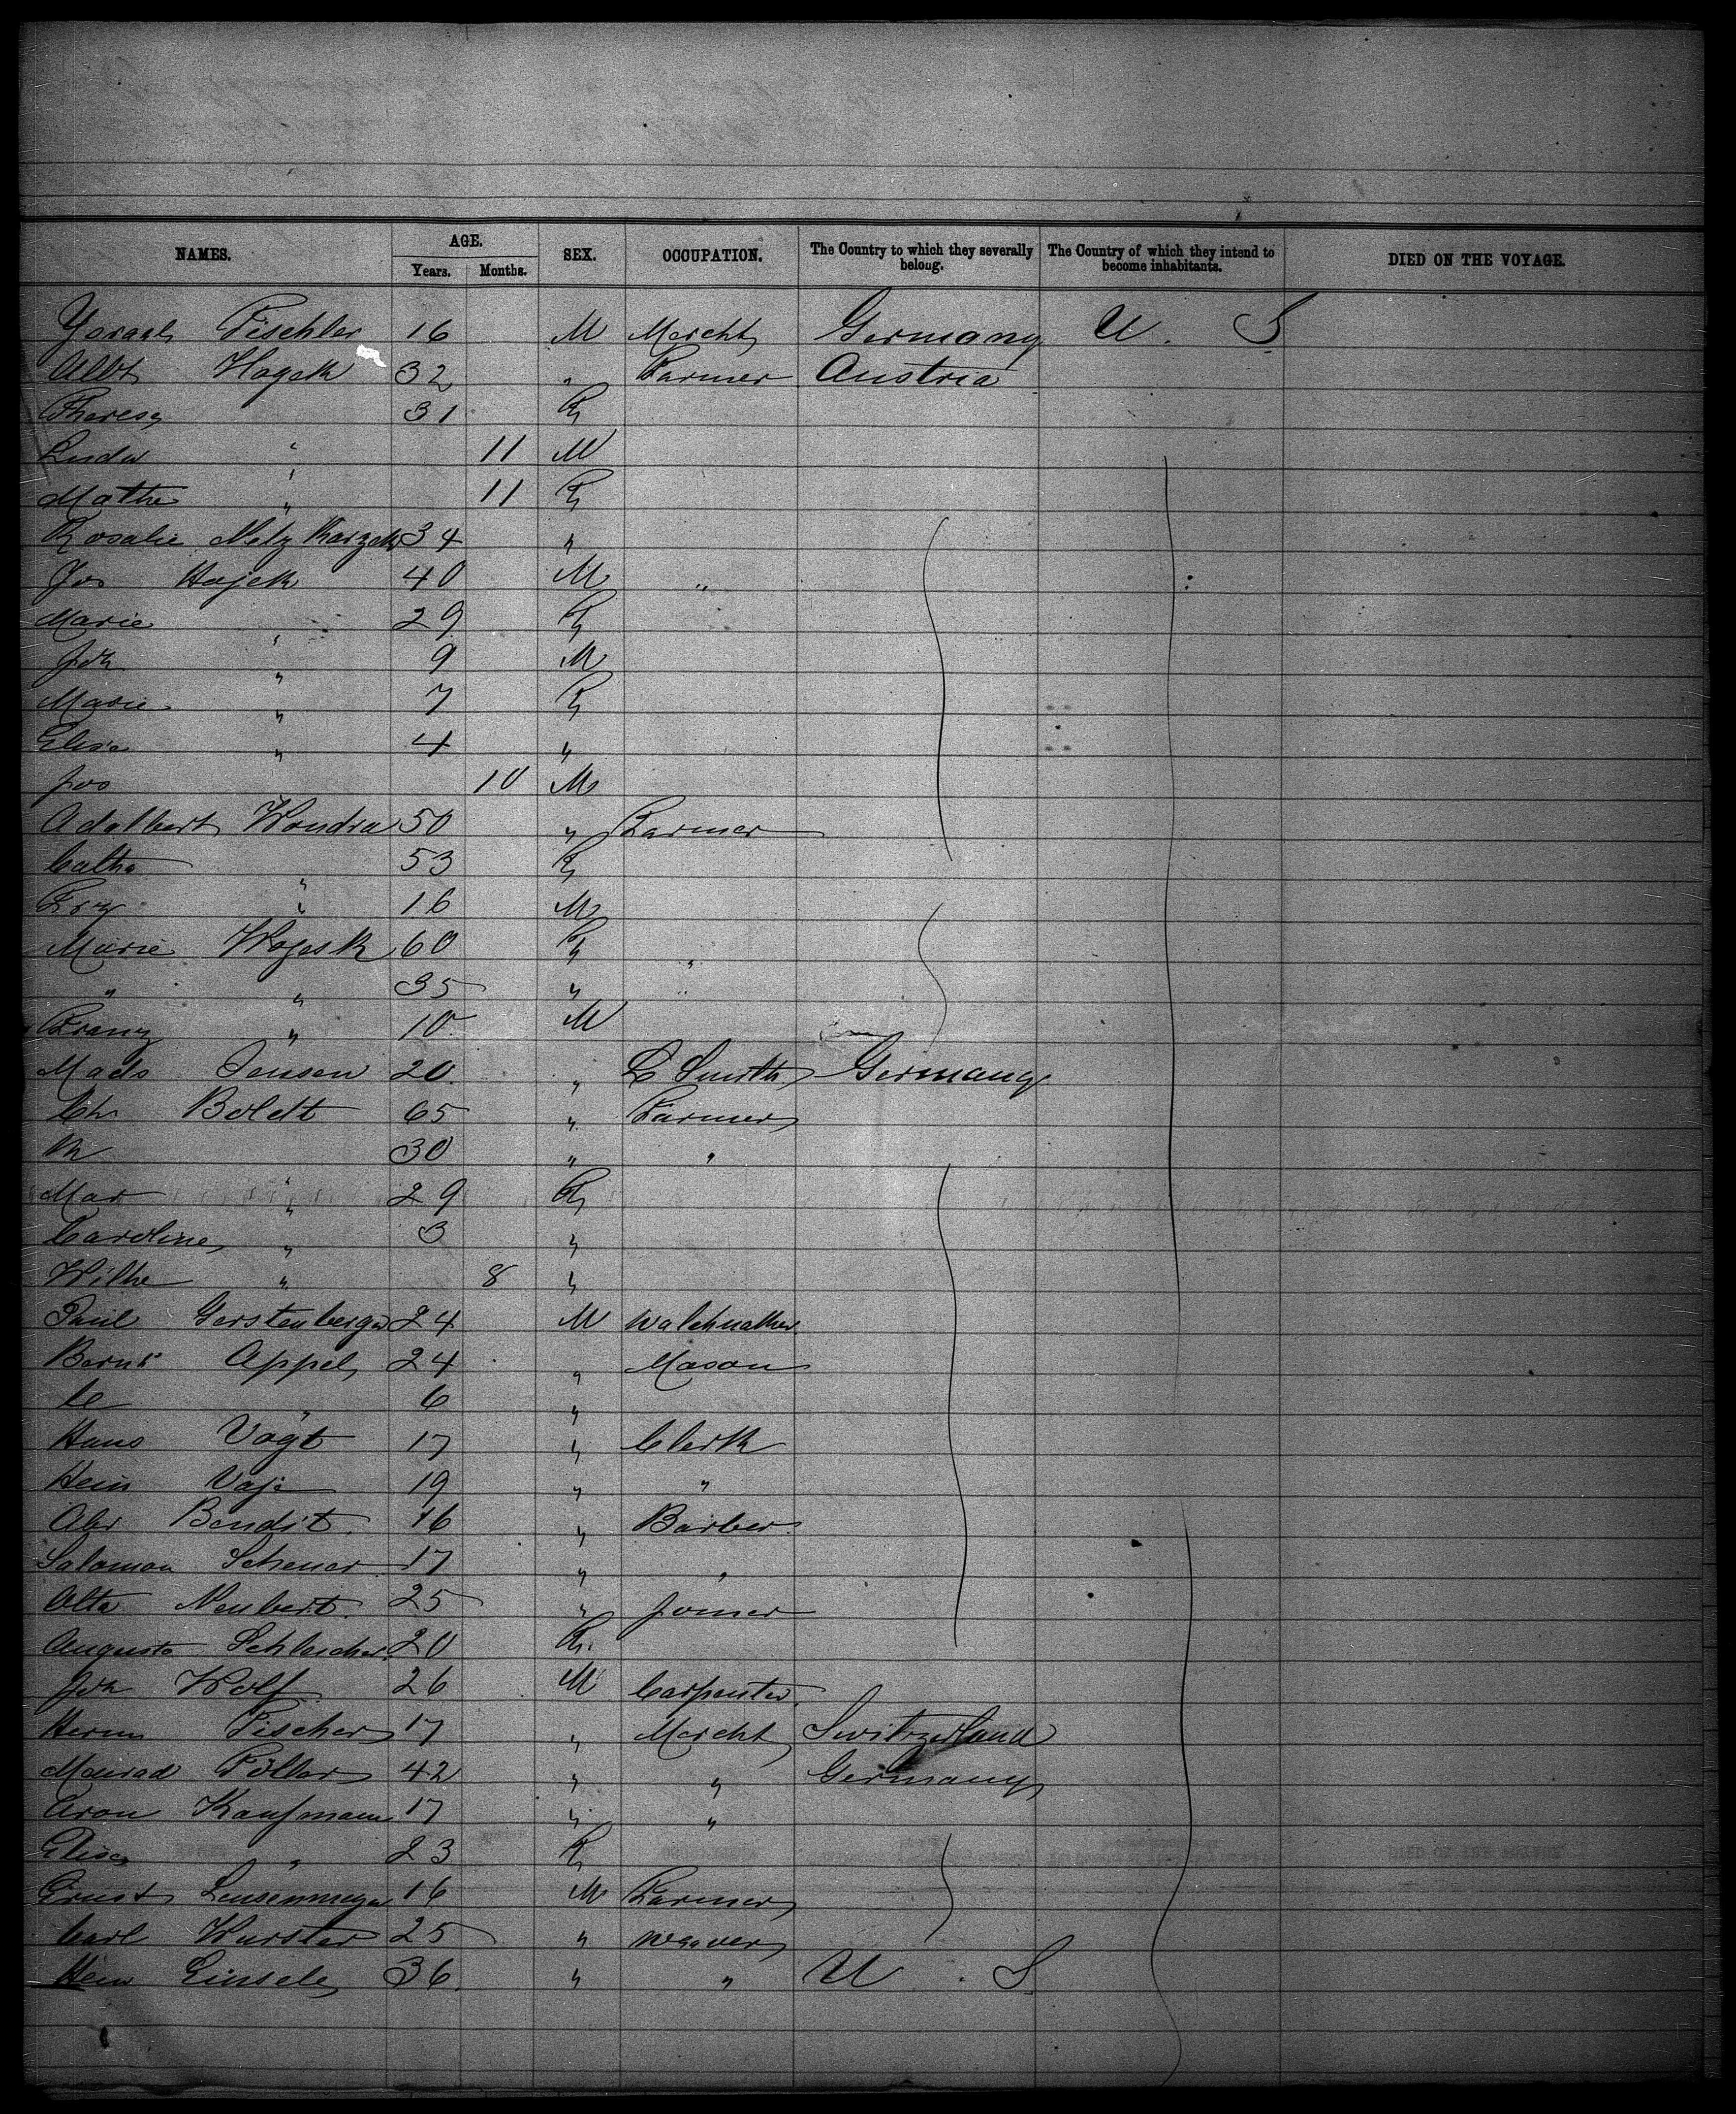 NAMES. AGE. SEX. OCCUPATION. The Country to which they severally belong. The Country of which they intend to become inhabitants. DIED ON THE VOYAGE.
Years. Months.
Fischler 16 M Mercht Germany U. S
Albt Hayek 32 " Farmer Austria
Theres 31 F
Ludw " 11 M
Mathe " 11 F
Rosalie 34 "
Jos Hajek 40 M "
Marie " 29 F
Joh " 9 M
Marie " 7 F
Elisa " 4 "
Jos 10 M
Adalbert Wondra 50 " Farmer
Catha " 53 F
Frz " 16 M
Marie 60 F "
" " 35 " "
Franz " 10 M
Mads Jensen 20 " Germany
Ch Boldt 65 " Farmer
30 " "
Mar " 29 F
Caroline " 3 "
Wilhe " 8 "
Paul Gerstenberger 24 M
Bernh Appel 24 " Mason
" 6 "
Hans Vogt 17 " Clerk
Hein 19 " "
Abr Bendit 16 " Barber
Salomon Scheuer 17 " "
Neubert 25 " Joiner
Augusta Schleicher 20 F
Joh Wolf 26 M Carpenter
Herm Fischer 17 " Mercht Switzerland
42 " " Germany
Aron Kaufmann 17 " "
Elisa " 23 F
Ernst 16 M Farmer
Carl Wurster 25 " weaver
Hein Einsele 36 " " U. S.